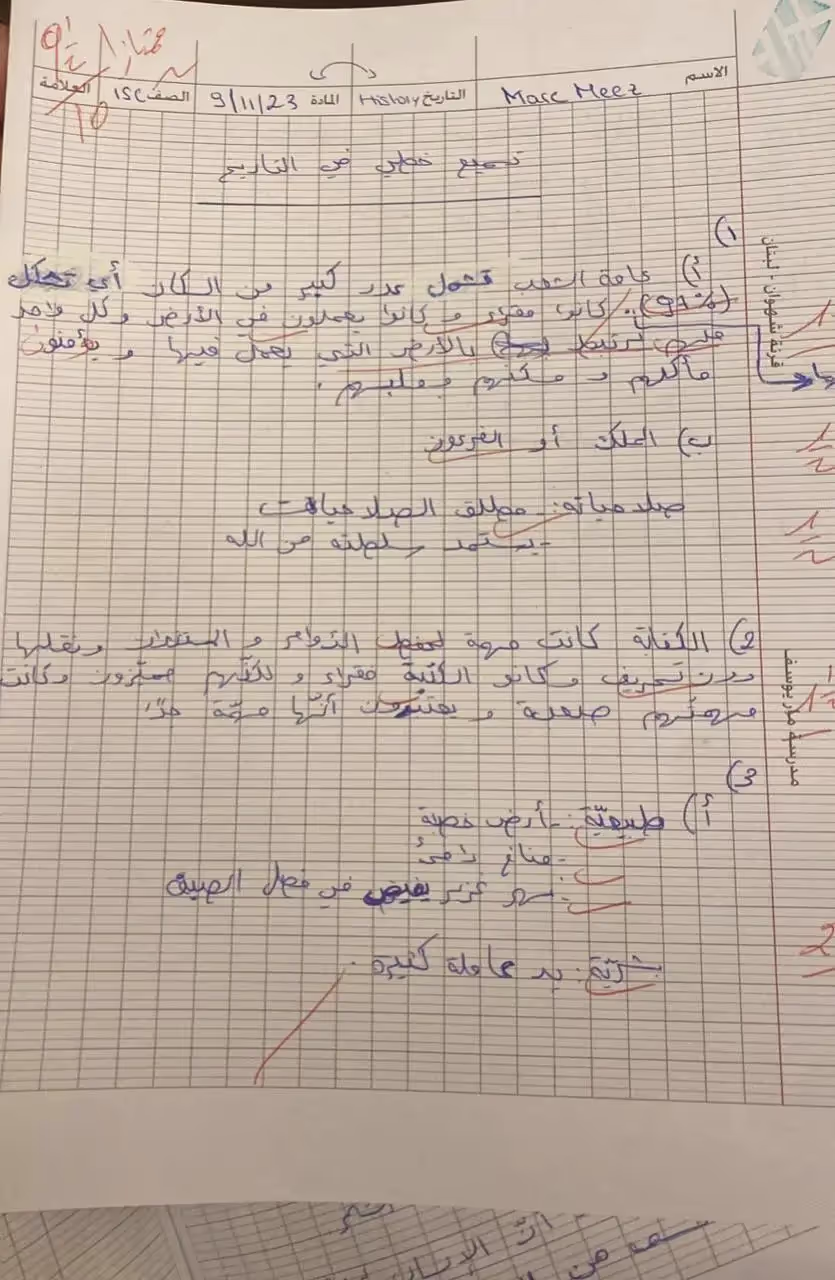 ممتاز 9 1/2
10
الاسم Marc Meez التاريخ History المادة 9/11/23 الصف 1SC العلامة
تسميع خطي في التاريخ
1)
أ) عامة الشعب تشمل عدد كبير من السكان أي تشكل
(90%). كانوا فقراء و كانوا يعملون في الأرض و كل واحد
منهم ارتبط بالأرض التي يعمل فيها و يؤمنون
مأكلهم و مسكنهم وملبسهم.
ب) الملك أو الفرعون
صلاحياته: - مطلق الصلاحيات
- يستمد سلطته من الله
2) الكتابة كانت مهمة لحفظ الأوامر و المستندات ونقلها
دون تحريف وكانو الكتبة فقراء و لكنّهم مميّزون وكانت
مهمتهم صعبة و يعتبرون أنّها مهمّة جدًا
3)
أ) طبيعيّة: - أرض خصبة
- مناخ دافئ
- نهر غزير يفيض في فصل الصيف
بشريّة: يد عاملة كثيرة.
قرنة شهوان - لبنان
مدرسة مار يوسف
1
1/2
1/2
2
أنّ
من